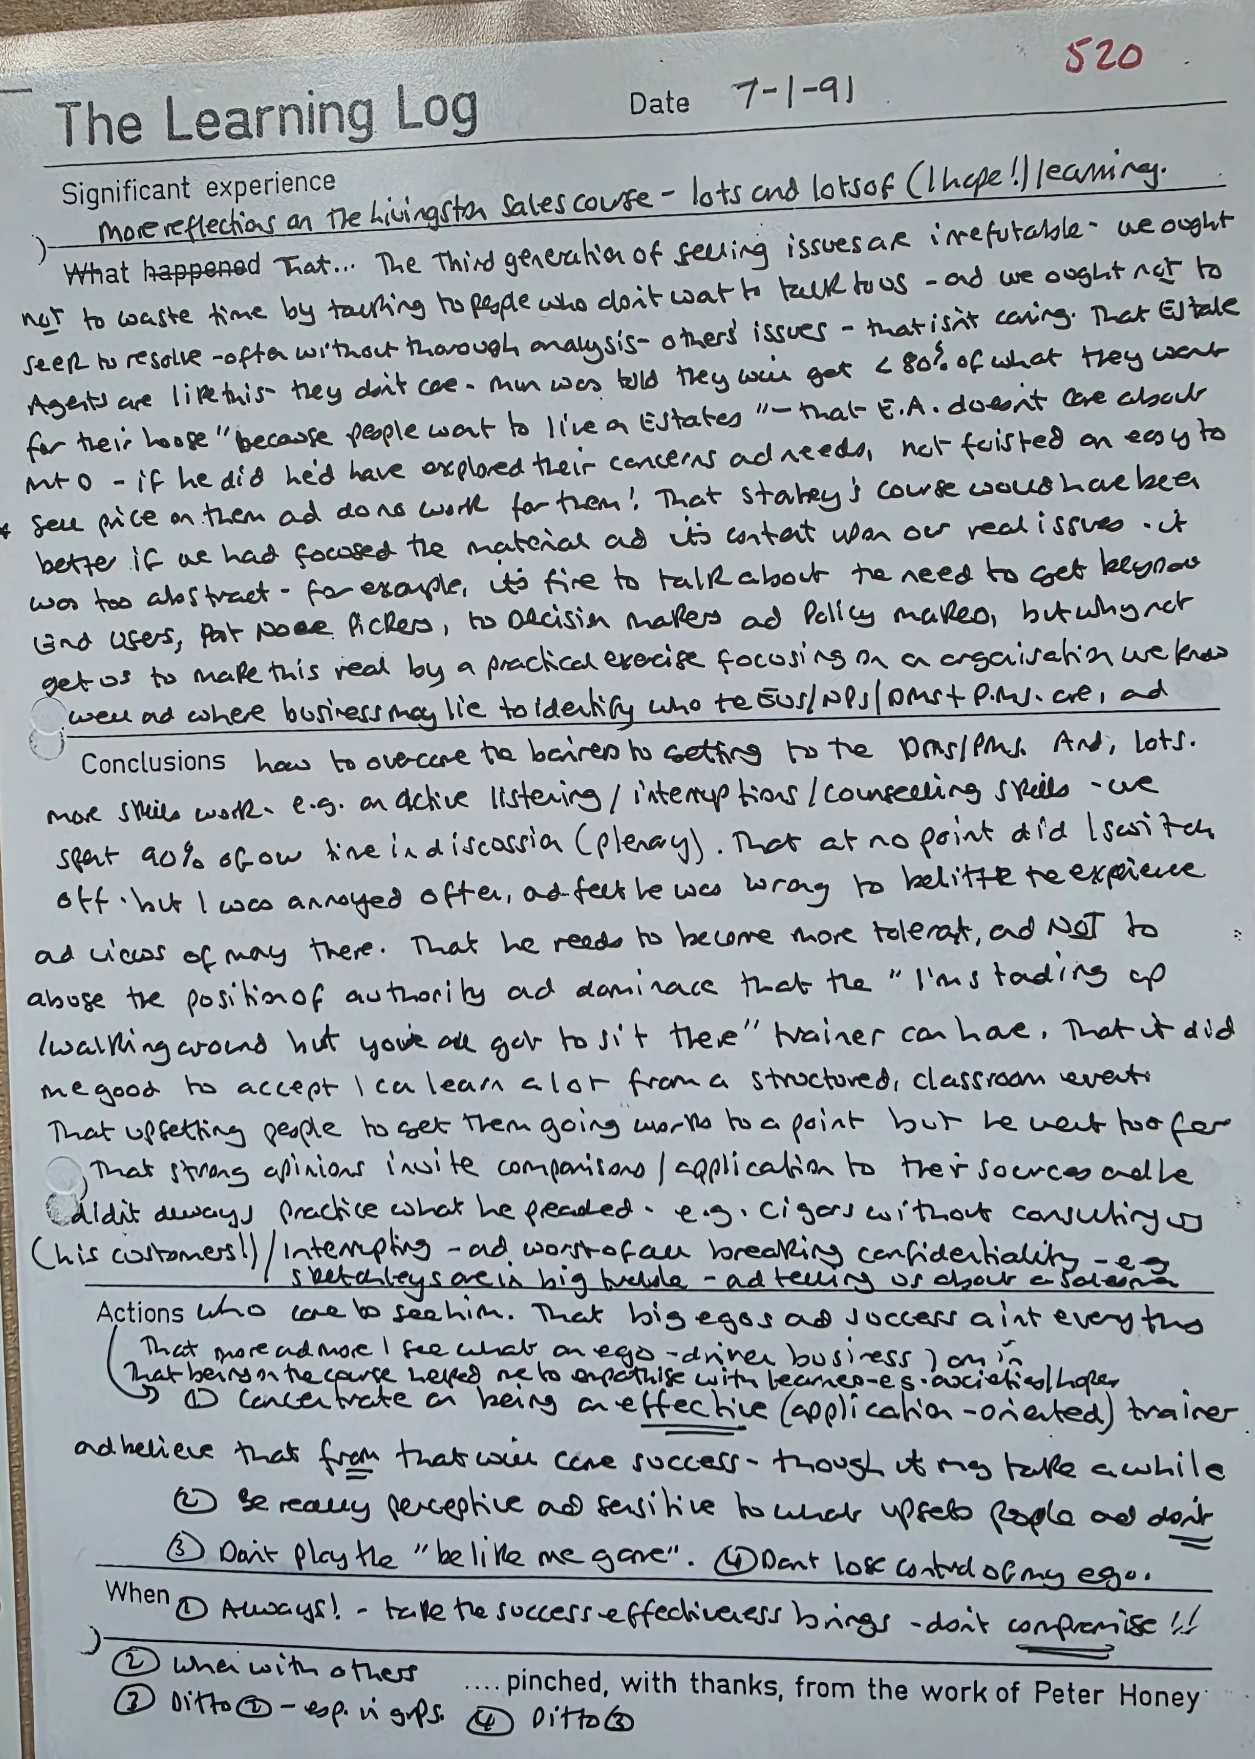 520
The Learning Log Date 7-1-91
Significant experience
More reflections on The Livingston Sales course - lots and lots of (I hope!) learning.
What happened That... The Third generation of selling issues are irrefutable - we ought
not to waste time by talking to people who don't want to talk to us - ad we ought not to
seek to resolve - often without thorough analysis - others' issues - that isn't caring. That Estate
Agents are like this - they don't care - Mum was told they will get < 80% of what they want
for their house "because people want to live on Estates" - that E.A. doesn't care about
M+D - if he did he'd have explored their concerns ad needs, not foisted an easy to
* sell price on them ad do no work for them! That Starkey's course would have been
better if we had focused the material ad its content upon our real issues. it
was too abstract - for example, it's fine to talk about the need to get beyond
End Users, Nose Pickers, to Decision makers ad Policy makers, but why not
get us to make this real by a practical exercise focusing on an organisation we know
well ad where business may lie to identify who the EUs/NPs/DMs + P.Ms. are, ad
Conclusions how to overcome the barriers to getting to the DMs/PMs. And, lots.
more skills work - e.g. on active listening / interruptions / counselling skills - we
spent 90% of our time in discussion (plenary). That at no point did I switch
off - but I was annoyed often, ad felt he was wrong to belittle the experience
ad views of many there. That he needs to become more tolerant, ad NOT to
abuse the position of authority ad dominance that the "I'm standing up
/walking around but you've all got to sit there" trainer can have. That it did
me good to accept I can learn a lot from a structured, classroom event.
That upsetting people to get them going works to a point but he went too far
That strong opinions invite comparisons / application to their sources and he
didn't always practice what he preached - e.g. cigars without consulting us
(his customers!!) / interrupting - ad worst of all breaking confidentiality - eg
Sketchleys are in big trouble - ad telling us about a salesman
Actions who came to see him. That big egos ad success aint everything
That more ad more I see what an ego-driven business I am in
That being on the course helped me to empathise with learners - e.g. anxieties/hopes
① Concentrate on being an effective (application-oriented) trainer
ad believe that from that will come success - though it may take a while
② Be really perceptive ad sensitive to what upsets people ad don't
③ Don't play the "be like me game". ④ Don't lose control of my ego.
When ① Always! - take the success effectiveness brings - don't compromise!!
② When with others .... pinched, with thanks, from the work of Peter Honey
③ Ditto ② - esp. in grps. ④ Ditto ③